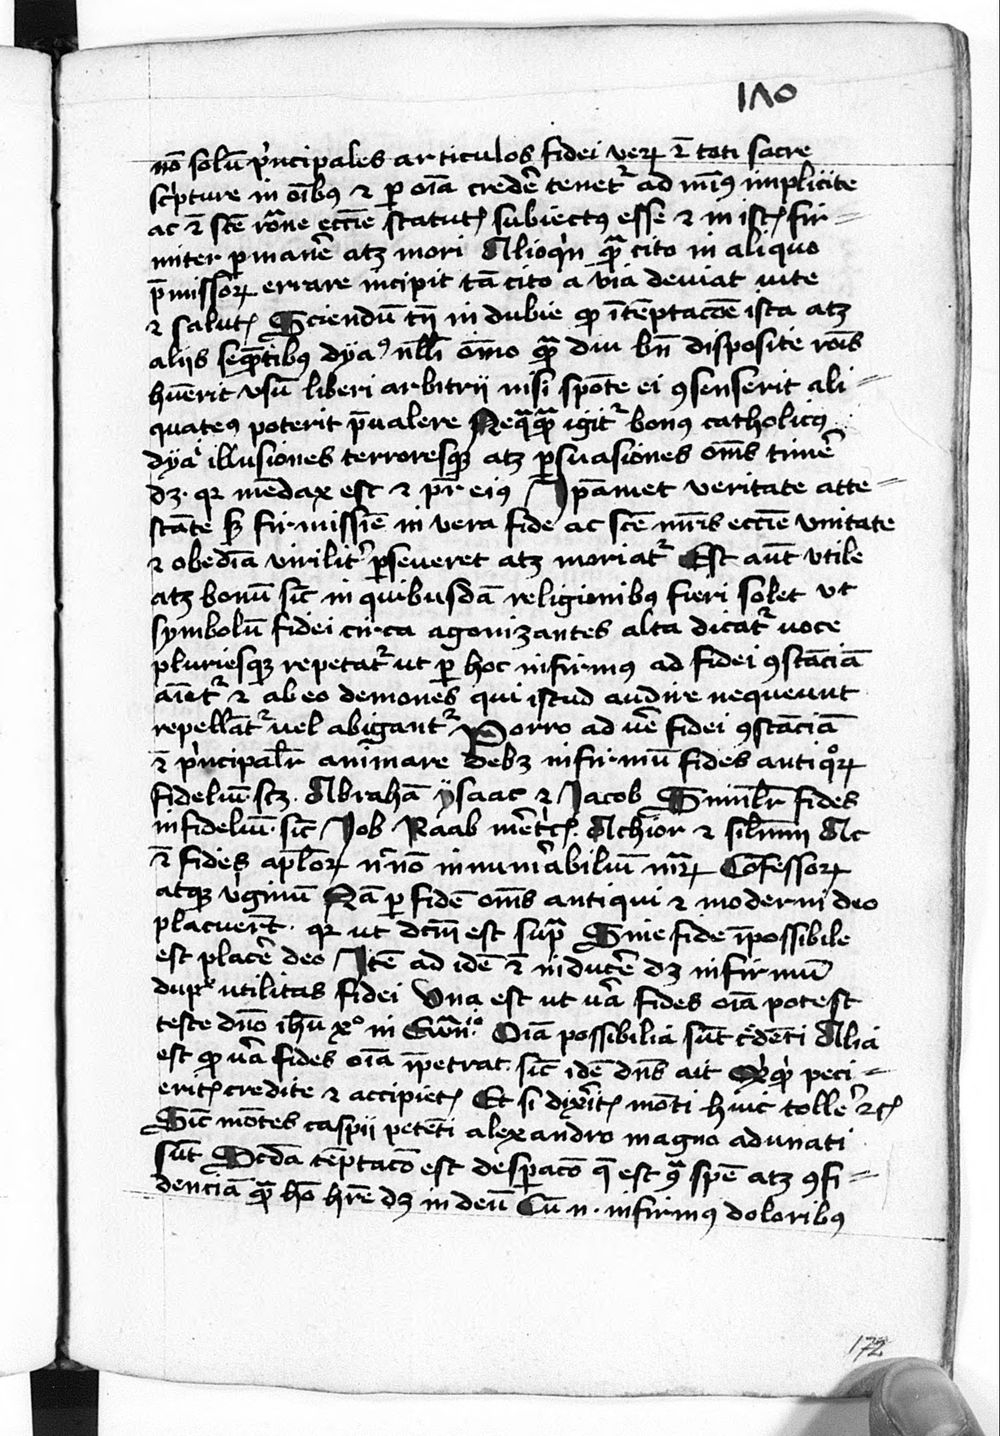 180
nō solū pͥncipales articulos fidei veꝝ ꝛ̄ toti sacre
scͥpture in oībꝯ ⁊ ꝑ oīa credē tenetᷣ ad minꝯ implicite
ac ꝛ̄ scē rōne eccīe statutꝭ subiectꝯ esse ⁊ in istꝭ fir=
miter ꝑmanē̄ atꝫ mori Alioqͥn qᷓ cito in aliquo
p̄missoꝝ errare incipit tā cito a via deviat vite
⁊ salutꝭ Sciendū tn̄ indubie ꝙ ī tēptacōe ista atꝫ
aliis seqn̄tibꝯ dyaꝯ nllī oīno qᷓdiu bn̄ disposite rōis
huerit vsū liberi arbitrii nisi spōte ei ꝯsenserit ali=
quatenꝯ poterit p̄ualere Neqᷓqᷓ igitᷣ bonꝯ catholicꝯ
dyaͥ illusiones terroresqꝫ atꝫ ꝑsuasiones om̄s timē
dꝫ qꝛ mēdax est ⁊ pr̄ eiꝯ Ipāmet veritate atte=
stāte sꝫ firmissīe in vera fide ac scē mr̄is eccīe vnitate
⁊ obedīa virilitᷣ ꝑseueret atꝫ moriatᷣ Est aūt vtile
atꝫ bonū sic̄ in quibusdā religionibꝯ fieri solet vt
symbolū fidei circa agonizantes alta dicatᷣ voce
pluriesqꝫ repetatᷣ ut ꝑ hoc infirmꝯ ad fidei ꝯstāciā
aīetᷣ ⁊ ab eo demones qui istud audire nequeunt
repellātᷣ uel abigantᷣ Porro ad vē fidei ꝯstāciā
ꝛ̄ pͥncipalr̄ animare debꝫ infirmū fides antiqͦꝝ
fideliū scꝫ Abrahā ysaac ⁊ Jacob Similr̄ fides
infideliū sic̄ Job Raab mētͥcꝭ Achior ⁊ siliuꝫ Ac
ꝛ̄ fides aplōꝝ nͨnō innumͥabiliū mr̄ꝝ Cōfessoꝝ
atqꝫ vͥginū Nā ꝑ fidē om̄s antiqui ⁊ moderni deo
placuer̄t qꝛ ut dcm̄ est supᷓ Sine fide īpossibile
est placē deo Itē ad idē ꝛ̄ inducē̄ dꝫ infirmū
dupͯ utilitas fidei Vna est ut vᷓa fides oīa potest
teste dn̄o ihū xͦ in Ewāͦ Oīa possibilia sūt cͬdēti Alia
est ꝙ vᷓa fides oīa īpetrat sic̄ idē dn̄s ait Qͥcqͥd peci=
eritꝭ credite ⁊ accipietꝭ Et si dixͥitꝭ mōti huic tolle ⁊cꝭ
Sic̄ mōtes caspii petēti alexandro magno adunati
sūt Scda tēptacō est desꝑacō q̄ est ꝯᷓ spē atꝫ ꝯfi=
denciā qᷓ hō hr̄e dꝫ in deū Cū n infirmꝯ doloribꝯ
172